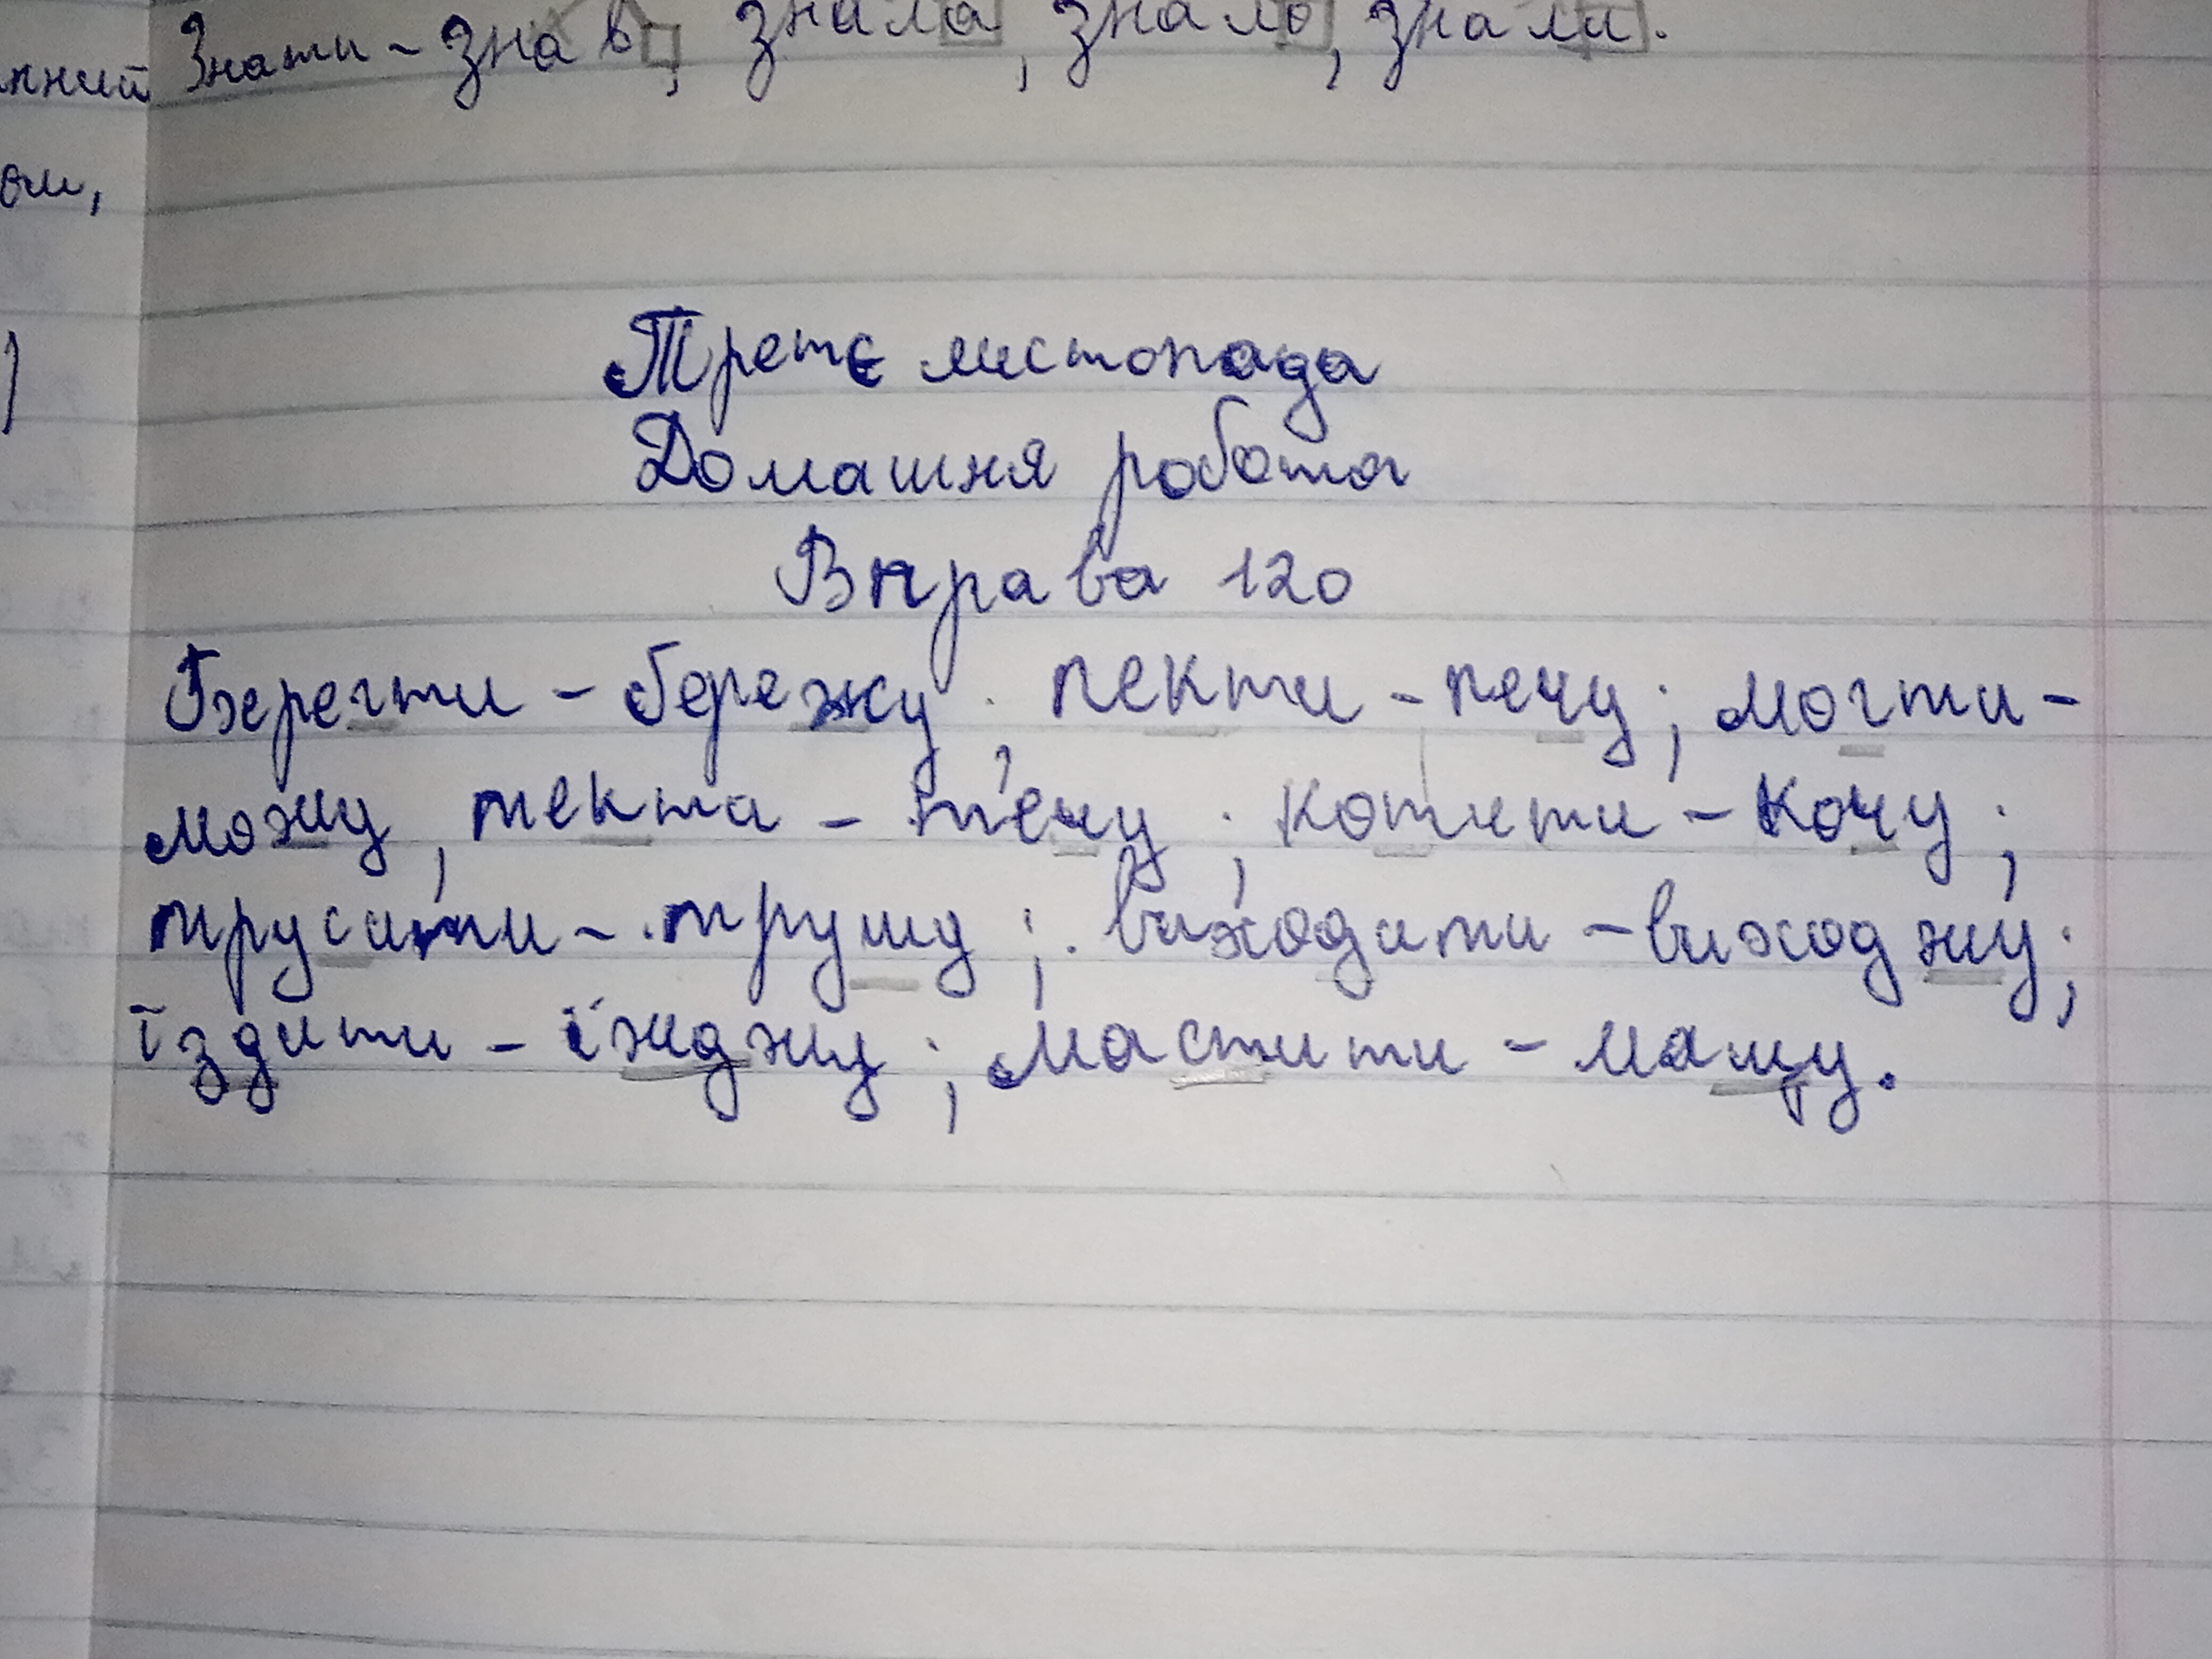 Знати - знав, знала, знало, знали.
Третє листопада
Домашня робота
Вправа 120
Берегти - бережу; пекти - печу; могти -
можу; текти - течу; котити - кочу;
трусити - трушу; виходити - виходжу;
їздити - їжджу; мастити - мащу.